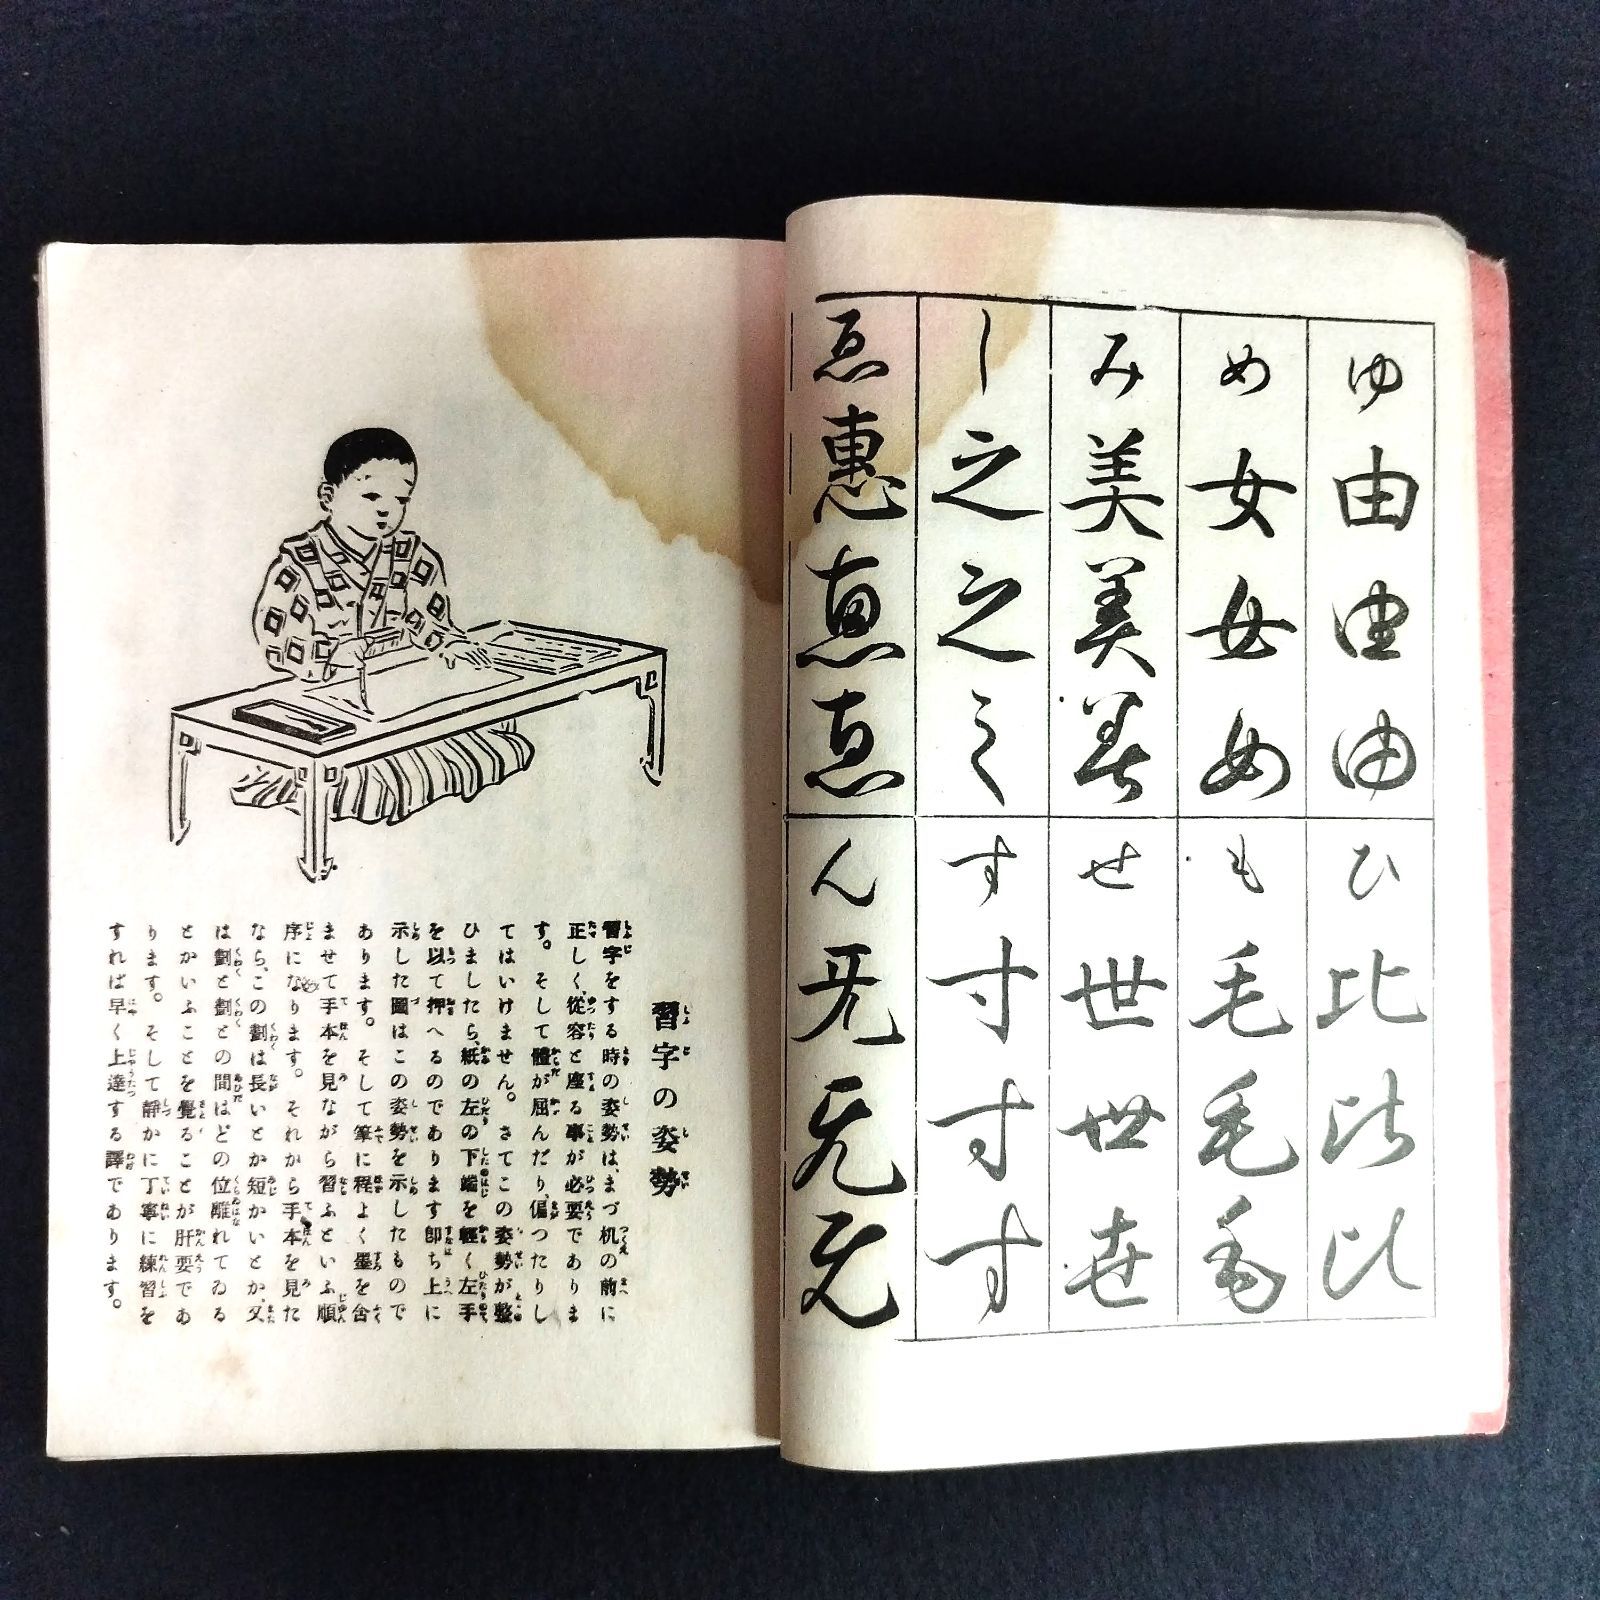 ゆ由由由
め女女女
み美美美
し之之之
ゑ惠惠惠
ひ比比比
も毛毛毛
せ世世世
す寸寸寸
ん旡旡旡
習字の姿勢
習字をする時の姿勢は、まづ机の前に
正しく、從容と座る事が必要でありま
す。そして體が屈んだり、偏つたりし
てはいけません。さてこの姿勢が整
ひましたら、紙の左の下端を輕く左手
を以て押へるのであります卽ち上に
示した圖はこの姿勢を示したもので
あります。そして筆に程よく墨を含
ませて手本を見ながら習ふといふ順
序になります。それから手本を見た
なら、この劃は長いとか短かいとか、又
は劃と劃との間はどの位離れてゐる
とかいふことを覺ることが肝要であ
ります。そして靜かに丁寧に練習を
すれば早く上達する譯であります。